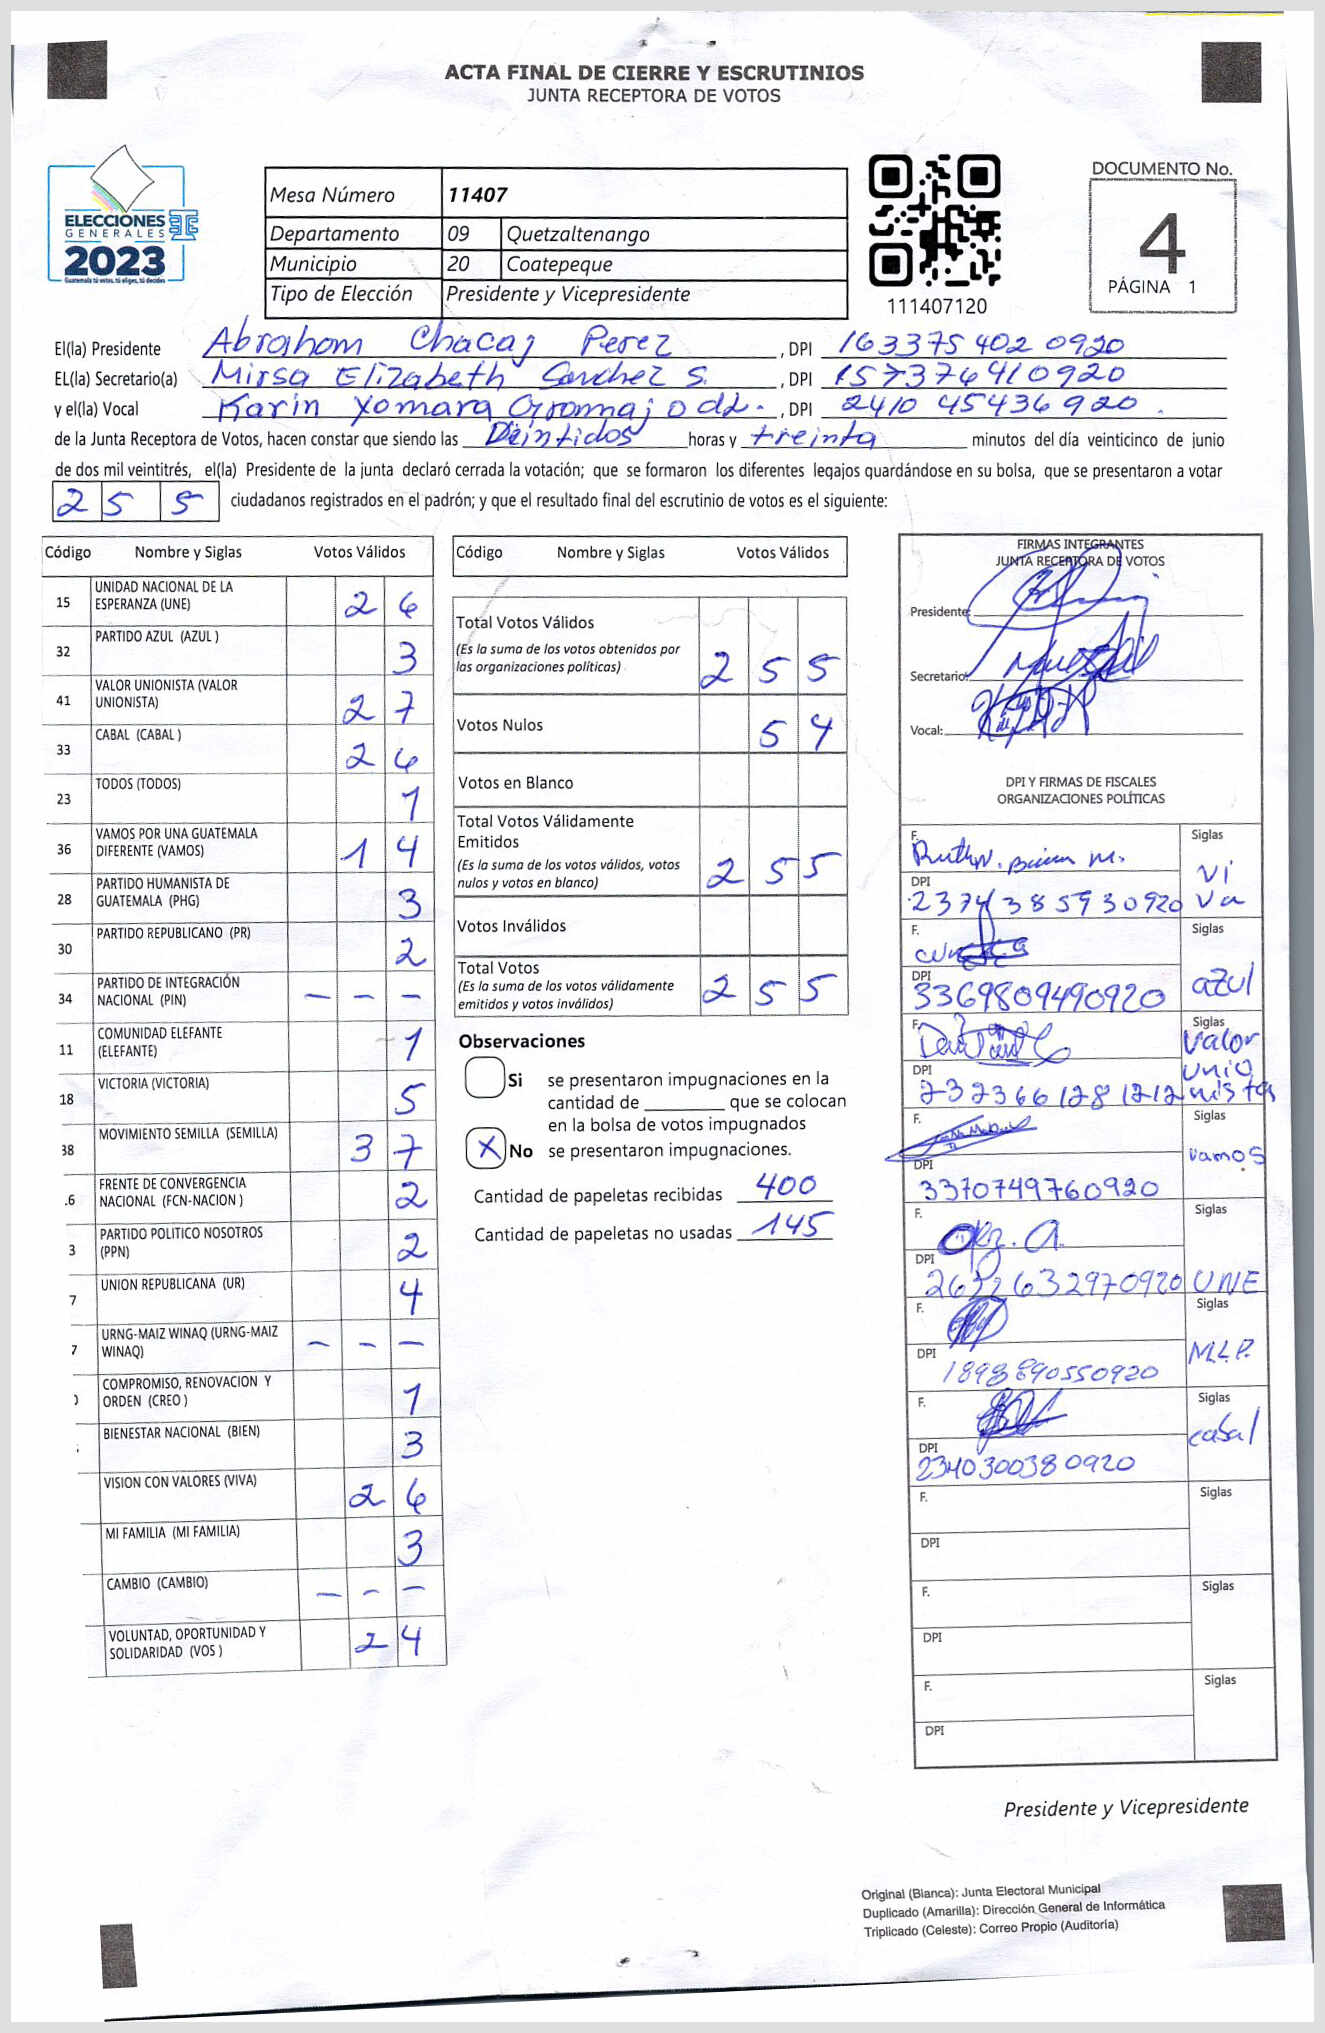 ACTA FINAL DE CIERRE Y ESCRUTINIOS
JUNTA RECEPTORA DE VOTOS
ELECCIONES
GENERALES
2023
Guatemala tú votas, tú eliges, tú decides
Mesa Número 11407
Departamento 09 Quetzaltenango
Municipio 20 Coatepeque
Tipo de Elección Presidente y Vicepresidente
111407120
DOCUMENTO No.
4
PÁGINA 1
El(la) Presidente Abraham Chacaj Perez, DPI 163375402 0920
EL(la) Secretario(a) Mirsa Elizabeth Sanchez S., DPI 157376410920
y el(la) Vocal Karin Yomara, DPI 2410 45436920.
de la Junta Receptora de Votos, hacen constar que siendo las Veintidos horas y treinta minutos del día veinticinco de junio
de dos mil veintitrés, el(la) Presidente de la junta declaró cerrada la votación; que se formaron los diferentes legajos guardándose en su bolsa, que se presentaron a votar
255 ciudadanos registrados en el padrón; y que el resultado final del escrutinio de votos es el siguiente:
Código Nombre y Siglas Votos Válidos
15 UNIDAD NACIONAL DE LA ESPERANZA (UNE) 26
32 PARTIDO AZUL (AZUL ) 3
41 VALOR UNIONISTA (VALOR UNIONISTA) 27
33 CABAL (CABAL ) 26
23 TODOS (TODOS) 1
36 VAMOS POR UNA GUATEMALA DIFERENTE (VAMOS) 14
28 PARTIDO HUMANISTA DE GUATEMALA (PHG) 3
30 PARTIDO REPUBLICANO (PR) 2
34 PARTIDO DE INTEGRACIÓN NACIONAL (PIN) - - -
11 COMUNIDAD ELEFANTE (ELEFANTE) 1
18 VICTORIA (VICTORIA) 5
38 MOVIMIENTO SEMILLA (SEMILLA) 37
.6 FRENTE DE CONVERGENCIA NACIONAL (FCN-NACION ) 2
3 PARTIDO POLITICO NOSOTROS (PPN) 2
7 UNION REPUBLICANA (UR) 4
7 URNG-MAIZ WINAQ (URNG-MAIZ WINAQ) - - -
COMPROMISO, RENOVACION Y ORDEN (CREO ) 1
BIENESTAR NACIONAL (BIEN) 3
VISION CON VALORES (VIVA) 26
MI FAMILIA (MI FAMILIA) 3
CAMBIO (CAMBIO) - - -
VOLUNTAD, OPORTUNIDAD Y SOLIDARIDAD (VOS ) 24
Código Nombre y Siglas Votos Válidos
Total Votos Válidos 255
(Es la suma de los votos obtenidos por
las organizaciones políticas)
Votos Nulos 54
Votos en Blanco
Total Votos Válidamente
Emitidos 255
(Es la suma de los votos válidos, votos
nulos y votos en blanco)
Votos Inválidos
Total Votos 255
(Es la suma de los votos válidamente
emitidos y votos inválidos)
Observaciones
Si se presentaron impugnaciones en la
cantidad de ________ que se colocan
en la bolsa de votos impugnados
X No se presentaron impugnaciones.
Cantidad de papeletas recibidas 400
Cantidad de papeletas no usadas 145
FIRMAS INTEGRANTES
JUNTA RECEPTORA DE VOTOS
Presidente:
Secretario:
Vocal:
DPI Y FIRMAS DE FISCALES
ORGANIZACIONES POLÍTICAS
F. Siglas
DPI Viva
F. Siglas
DPI 3369809490920 azul
F. Siglas
DPI 232366 128 1212 Valor Unionista
F. Siglas
DPI 3370749760920 vamos
F. Siglas
DPI UNE
F. Siglas
DPI 1898890550920 M.L.P.
F. Siglas
DPI 2340300380920 cabal
F. Siglas
DPI
F. Siglas
DPI
F. Siglas
DPI
Presidente y Vicepresidente
Original (Blanca): Junta Electoral Municipal
Duplicado (Amarilla): Dirección General de Informática
Triplicado (Celeste): Correo Propio (Auditoría)